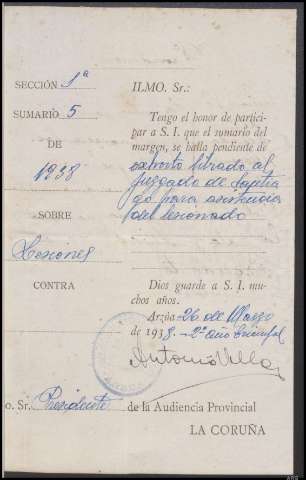 SECCIÓN 1ª
SUMARIO 5
DE
1938
SOBRE
Lesiones
CONTRA
ILMO. Sr.:
Tengo el honor de partici-
par a S. I. que el sumario del
margen, se halla pendiente de
exhorto librado al
Juzgado de Santia
go para asistencia
del lesionado
Dios guarde a S. I. mu-
chos años.
Arzúa 26 de Marzo
de 1938.- 2º año triunfal
Antonio Villa
o. Sr. Presidente de la Audiencia Provincial
LA CORUÑA